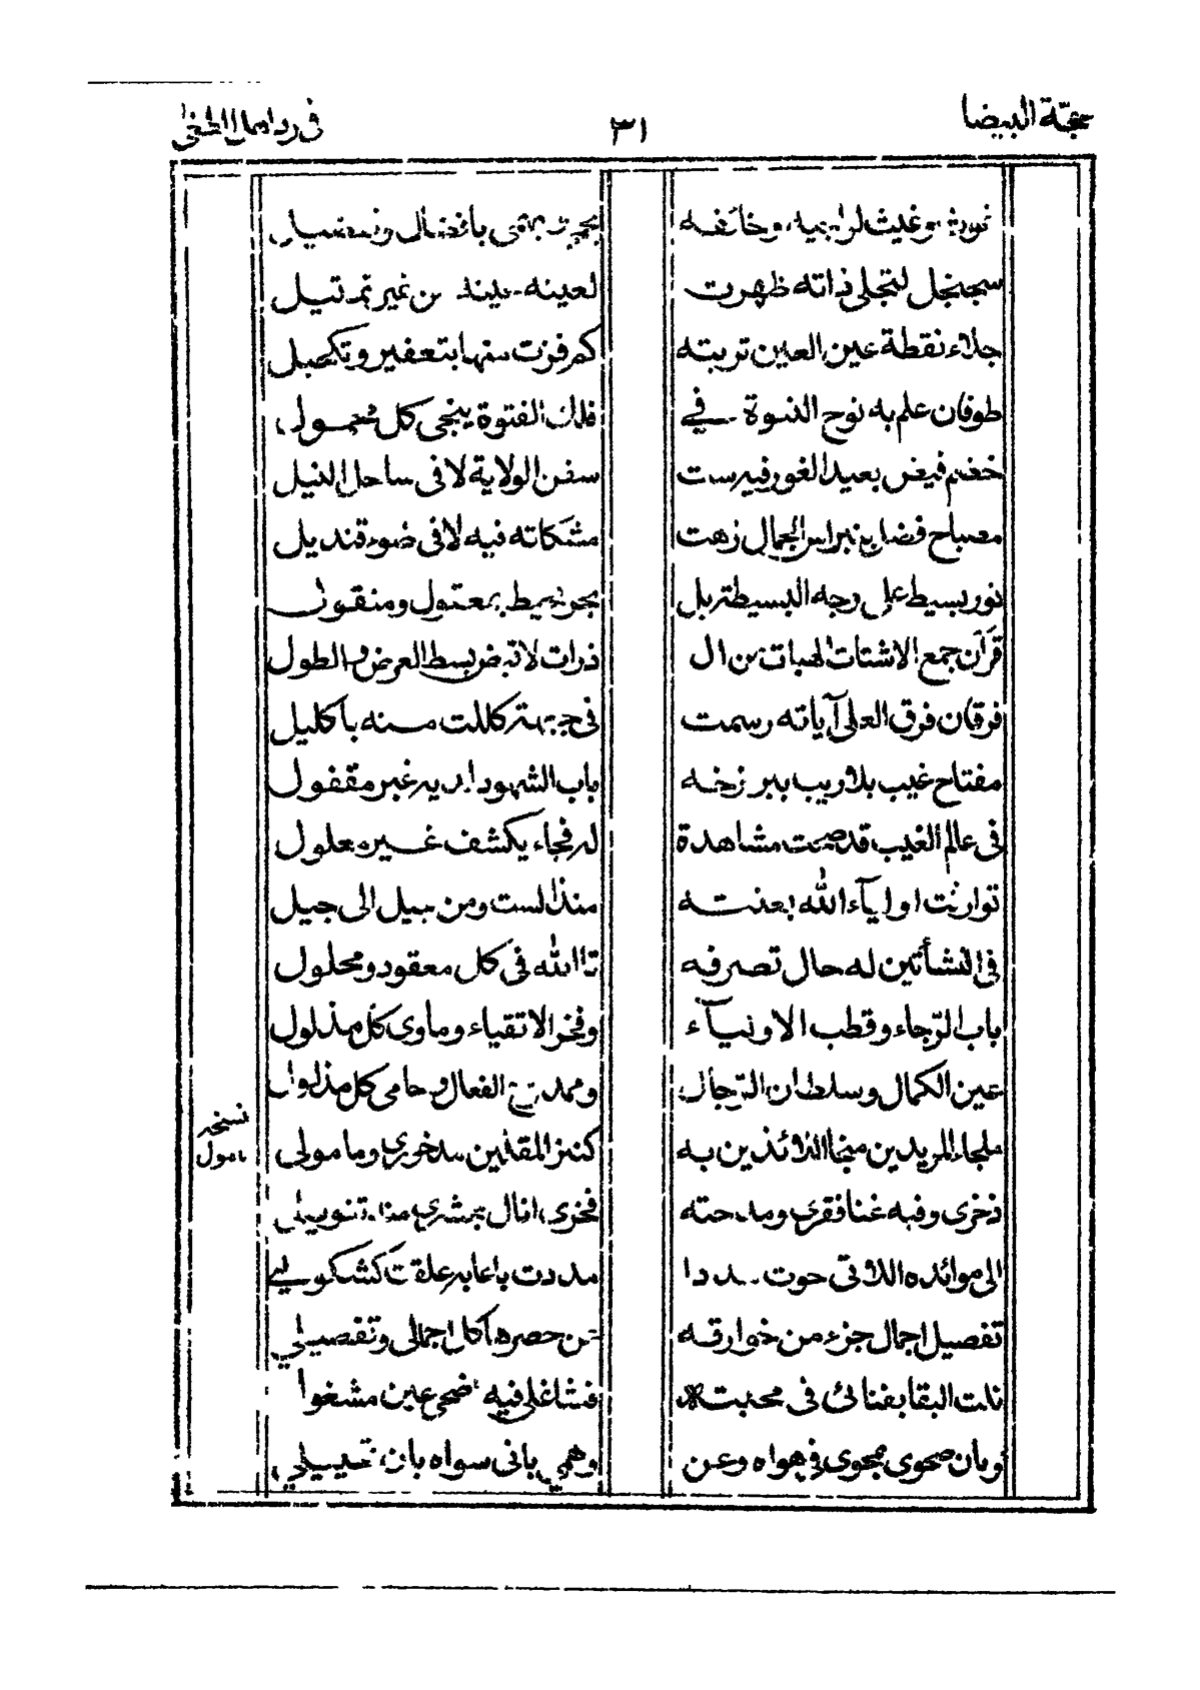 حجّة البيضا ٣١ فى رد اهل الخطى
وغيث وخائفه
سجنجل لتجلى ذاته ظهرت لعينه من غير تمثيل
جلاء نقطة عين العين تربته كم فزت منها بتعفير وتكحيل
طوفان علم به نوح النبوة فى فلك الفتوة ينجى كل محمول
خضم فيض بعيد الغور فيه رست سفن الولاية لا فى ساحل النيل
مصباح فضل به نبراس الجمال زهت مشكاته فيه لا فى ضوء قنديل
نور بسيط على وجه البسيطة بل بحر محيط بمعقول ومنقول
قرآن جمع الاشتات الهبات من ال ذرات لا قبض بسط العرض والطول
فرقان فرق العلى آياته رسمت فى جبهة كللت منه باكليل
مفتاح غيب بلا ريب ببرزخه باب الشهود لديه غير مقفول
فى عالم الغيب قد صحت مشاهدة له فجاء بكشف غير معلول
توارثت اولياء الله بعنته منذ الست ومن جيل الى جيل
فى النشأتين له حال تصرفه تاالله فى كل معقود ومحلول
باب الرّجاء وقطب الاونيآء وفخر الاتقياء وماوى كل مذلول
عين الكمال وسلطان الرّجال الفعال وحامى كل مذلول
ملجاء المريدين منجا اللائذين به كنز المقلين مدخورى ومامولى
نسخه مامول
ذخرى وفيه غنا فقرى ومدحته فخرى انال ببشرى تنويلى
الى موائده اللاتى حوت مددا مددت باعا به علقت كشكولى
تفصيل اجمال جزء من خوارقه عن حصره كل اجمالى وتفصيلى
نلت البقا بفنائى فى محبته فشاغلى فيه اضحى عين مشغول
وبان صحوى بمحوى فى هواه وعن وهمى بانى سواه بان تخييلى